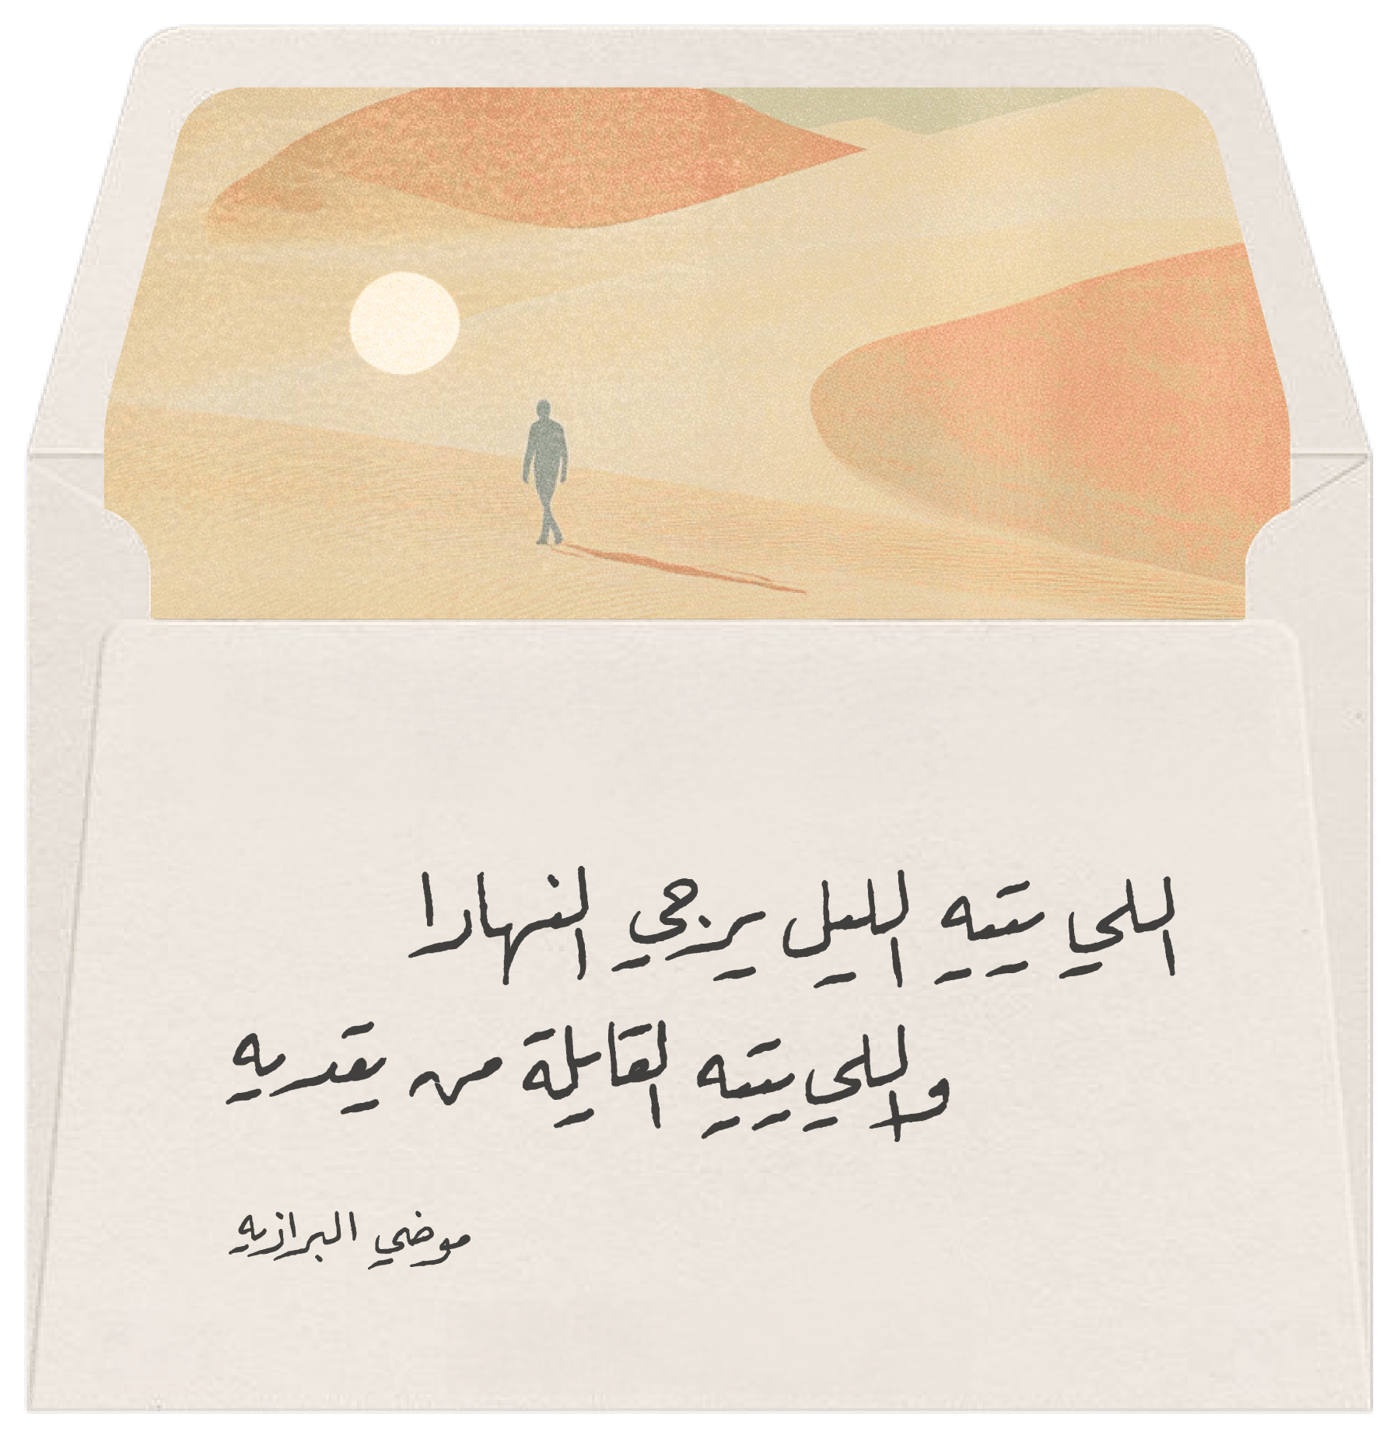 اللي يتيه الليل يرجي النهارا
واللي يتيه القايلة من يقديه
موضي البرازيه